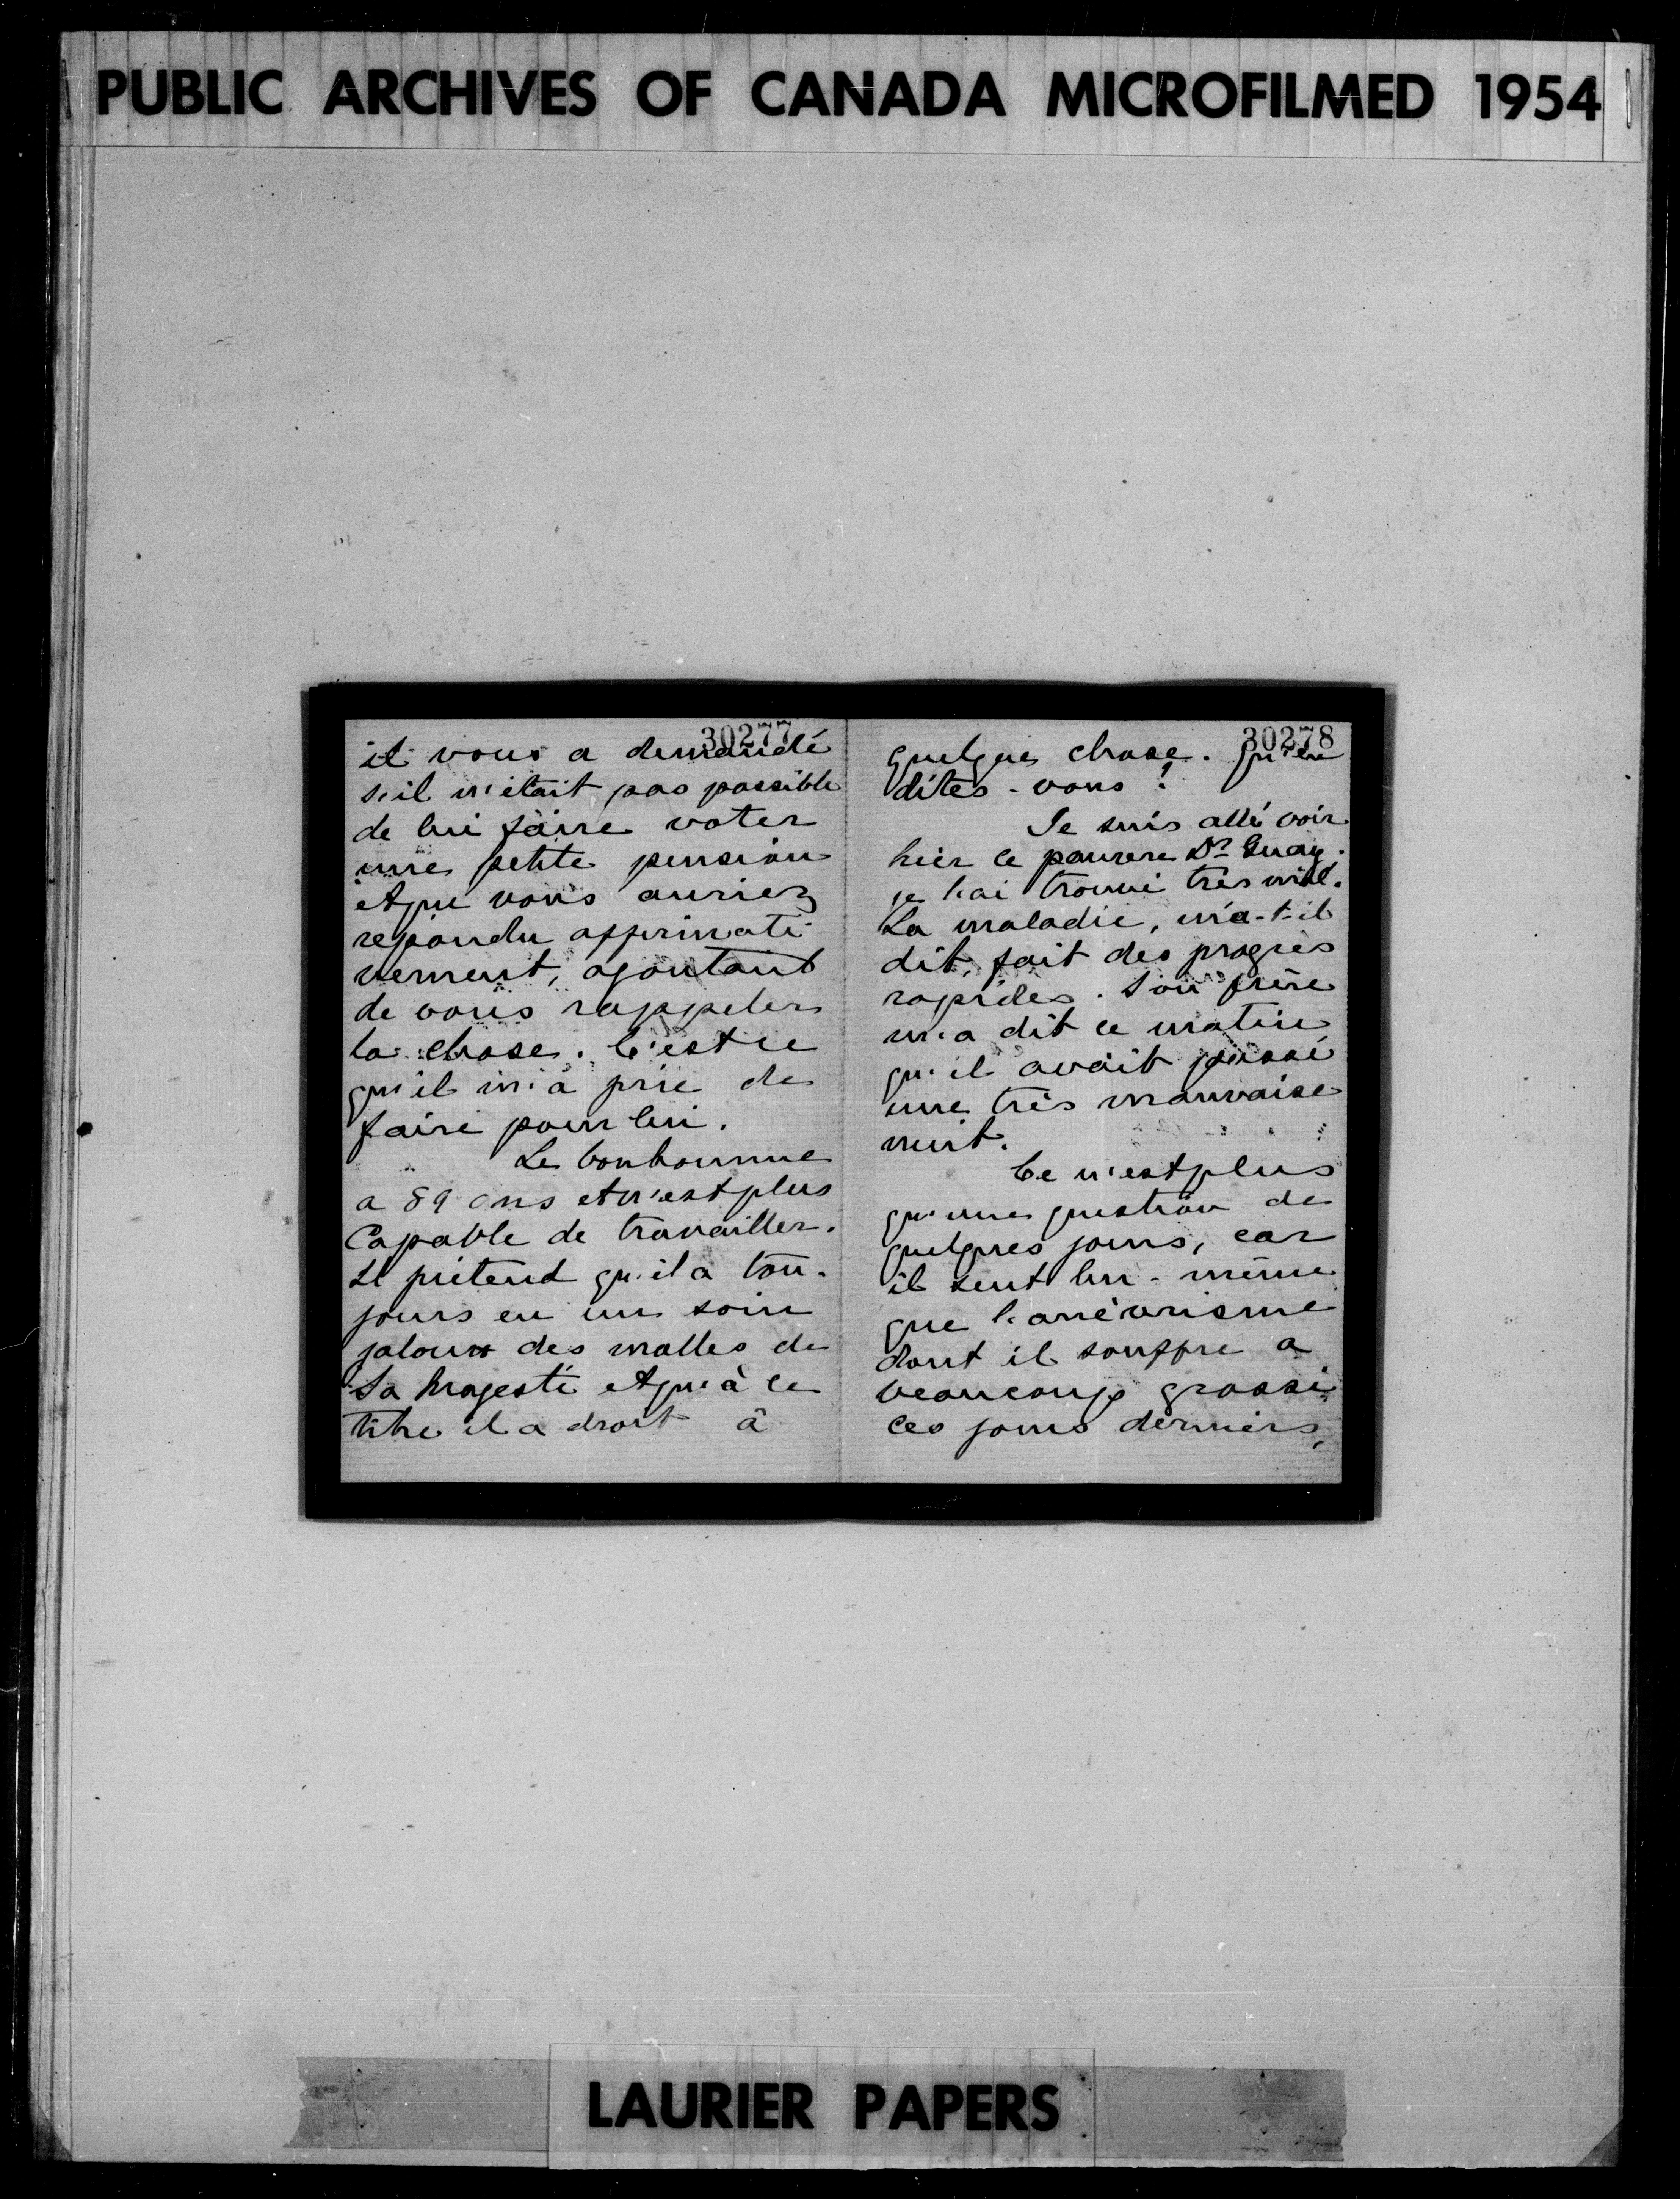 PUBLIC ARCHIVES OF CANADA MICROFILMED 1954
30277
il vous a demandé
s'il n'était pas possible
de lui faire voter
une petite pension
et que vous auriez
répondu affirmati-
vement, ajoutant
de vous rappeler
la chose. C'est ce
qu'il m'a prié de
faire pour lui.
Le bonhomme
a 89 ans et n'est plus
capable de travailler.
Il prétend qu'il a tou-
jours eu un soin
jaloux des malles de
Sa Majesté et qu'à ce
titre il a droit à
30278
quelque chose. Qu'en
dites-vous?
Je suis allé voir
hier ce pauvre Dr Guay;
je l'ai trouvé très mal.
La maladie, m'a-t-il
dit, fait des progrès
rapides. Son frère
m'a dit ce matin
qu'il avait passé
une très mauvaise
nuit.
Ce n'est plus
qu'une question de
quelques jours, car
il sent lui-même
que l'anévrisme
dont il souffre a
beaucoup grossi
ces jours derniers,
LAURIER PAPERS